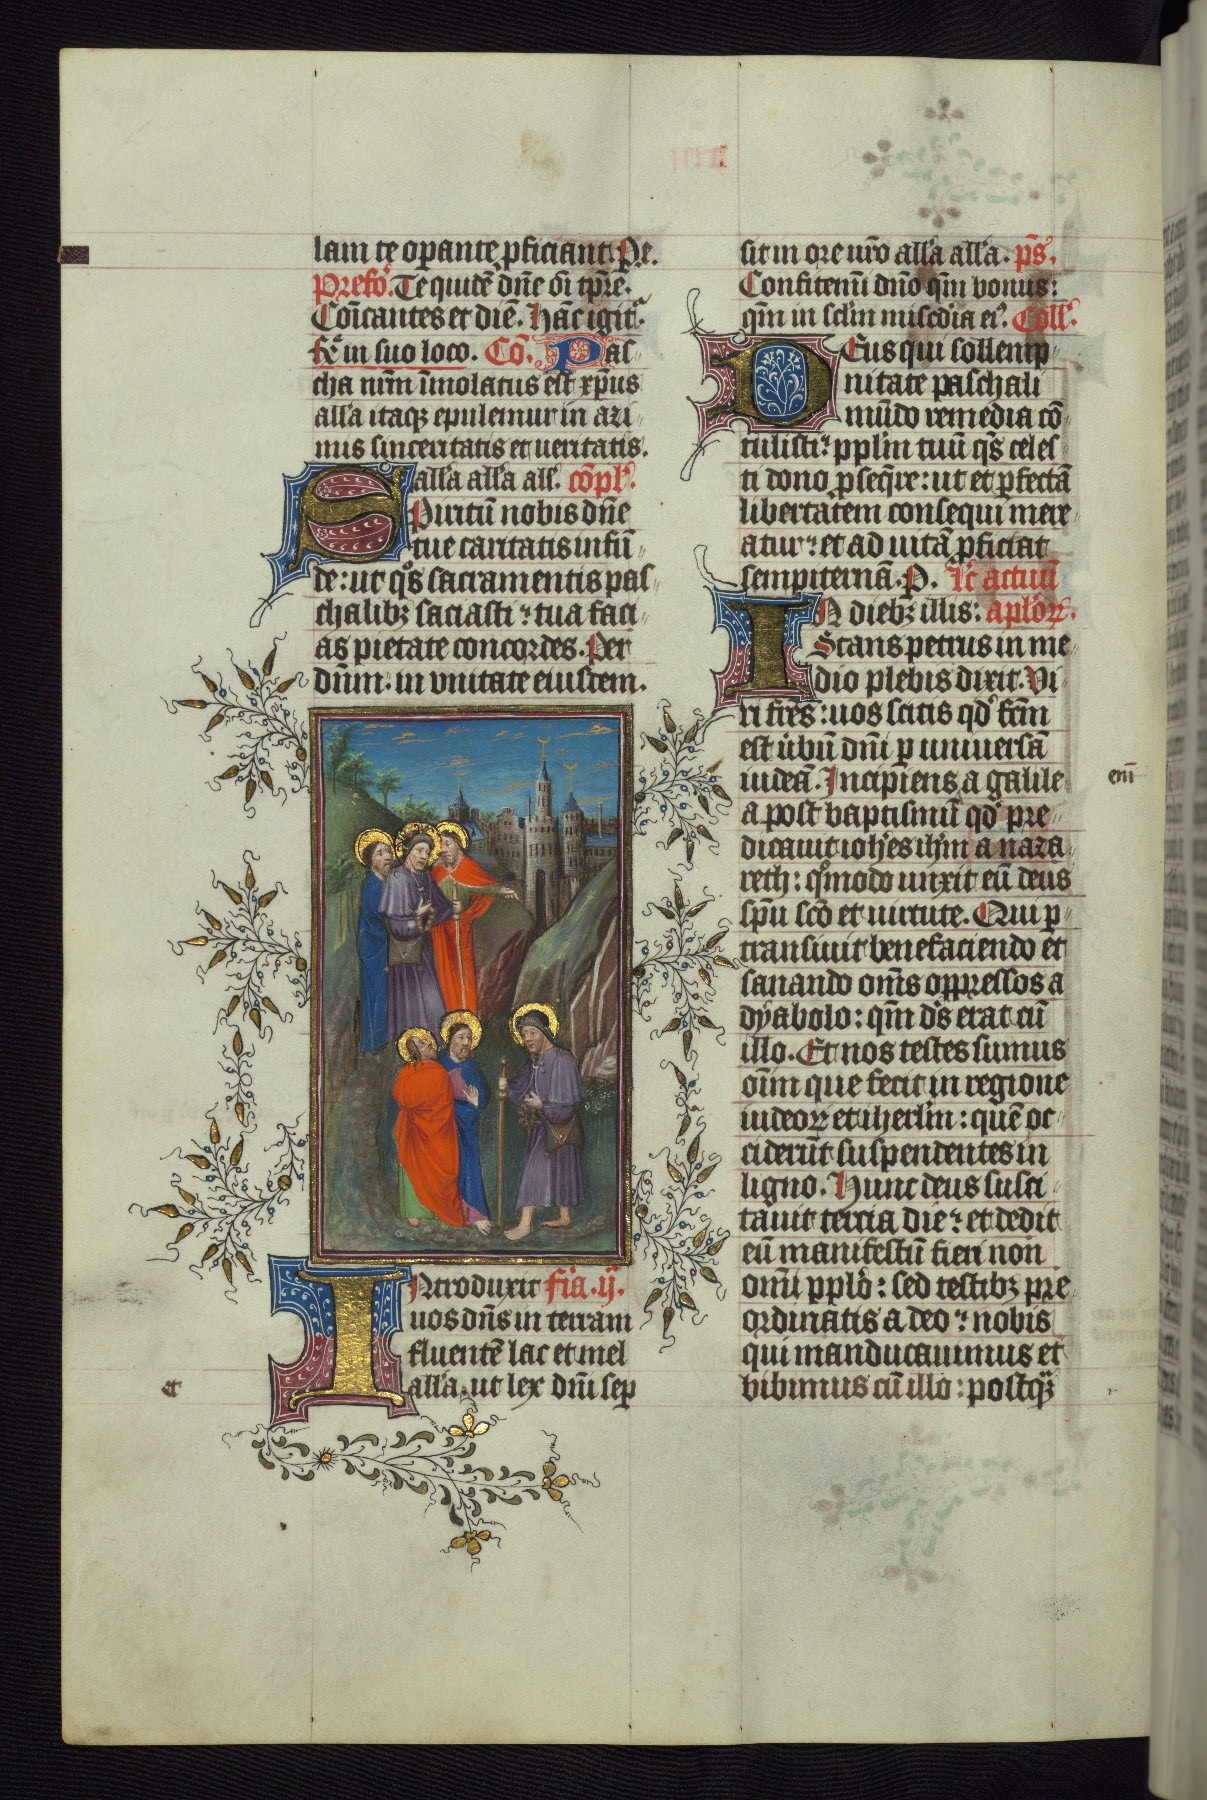 lam te opante pficiant Pe.
Prefo. Te quidē dn̄e oī tp̄re.
Cōicantes et diē. Hāc igit.
fr̄ in suo loco. Cō. Pas
cha nrm̄ īmolatus est xp̄us
all'a itaqz epulemur in azi
mis sinceritatis et ueritatis.
all'a all'a all'. cōpl'.
Spiritū nobis dn̄e
tue caritatis infū
de: ut qos sacramentis pas
chalibz saciasti: tua faci
as pietate concordes. Per
dnm̄. in vnitate eiusdem.
Introduxit fia. ij.
uos dn̄s in terram
fluentē lac et mel
all'a. ut lex dn̄i sep
et
sit in ore vr̄o all'a all'a. p̄s.
Confitemī dn̄o qm̄ bonus:
qm̄ in sclm̄ miscdīa ei'. Coll'.
Deus qui sollemp
nitate paschali
mūdo remedia cō
tulisti: pplm̄ tuū qs̄ celes
ti dono pseqre: ut et pfectā
libertatem consequi mere
atur: et ad uitā pficiat
sempiternā. P. Lc̄ actuū
In diebz illis: aplōrꝝ.
Stans petrus in me
dio plebis dixit. Vi
ri frēs: uos scitis qd' fcm̄
est ūbū dn̄i p uniuersā
iudeā. Incipiens a galile
enī
a post baptismū qd' pre
dicauit ioh'es ihm̄ a naza
reth: qomodo unxit eū deus
spū scō et uirtute. Qui p
transiuit benefaciendo et
sanando om̄s oppressos a
dyabolo: qm̄ ds̄ erat cū
illo. Et nos testes sumus
oīm que fecit in regione
iudeorꝝ et iherlm̄: quē oc
ciderūt suspendentes in
ligno. Hunc deus susci
tauit tercia die: et dedit
eū manifestū fieri non
omī pplō: sed testibz pre
ordinatis a deo: nobis
qui manducauimus et
bibimus cū illo: postqz̄